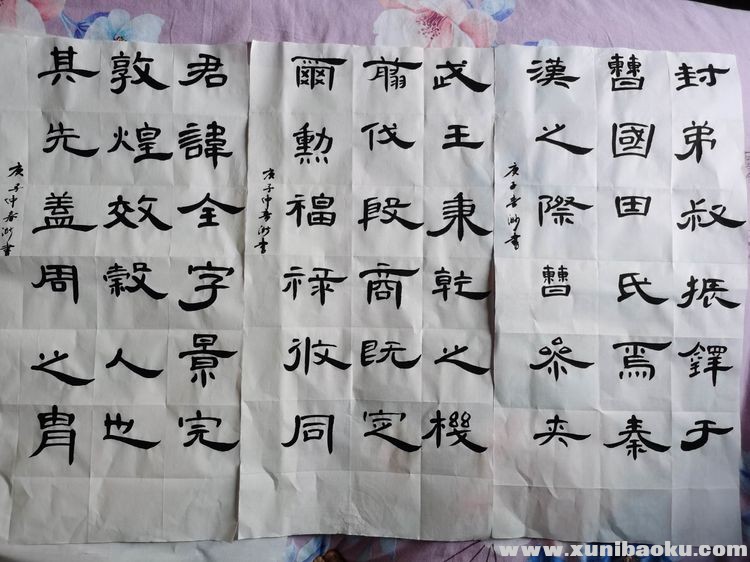 君諱全字景完
敦煌效穀人也
其先蓋周之冑
庚子仲春 書
武王秉乾之機
翦伐殷商既定
爾勳福祿攸同
庚子仲春 書
封弟叔振鐸于
曹國因氏焉秦
漢之際曹參夾
庚子春 書
www.xunibaoku.com